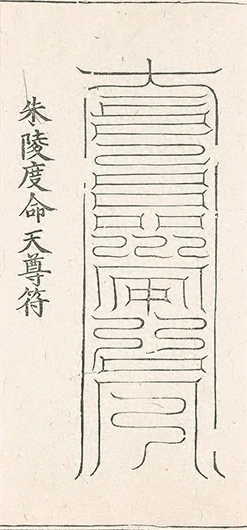 朱陵度命天尊符